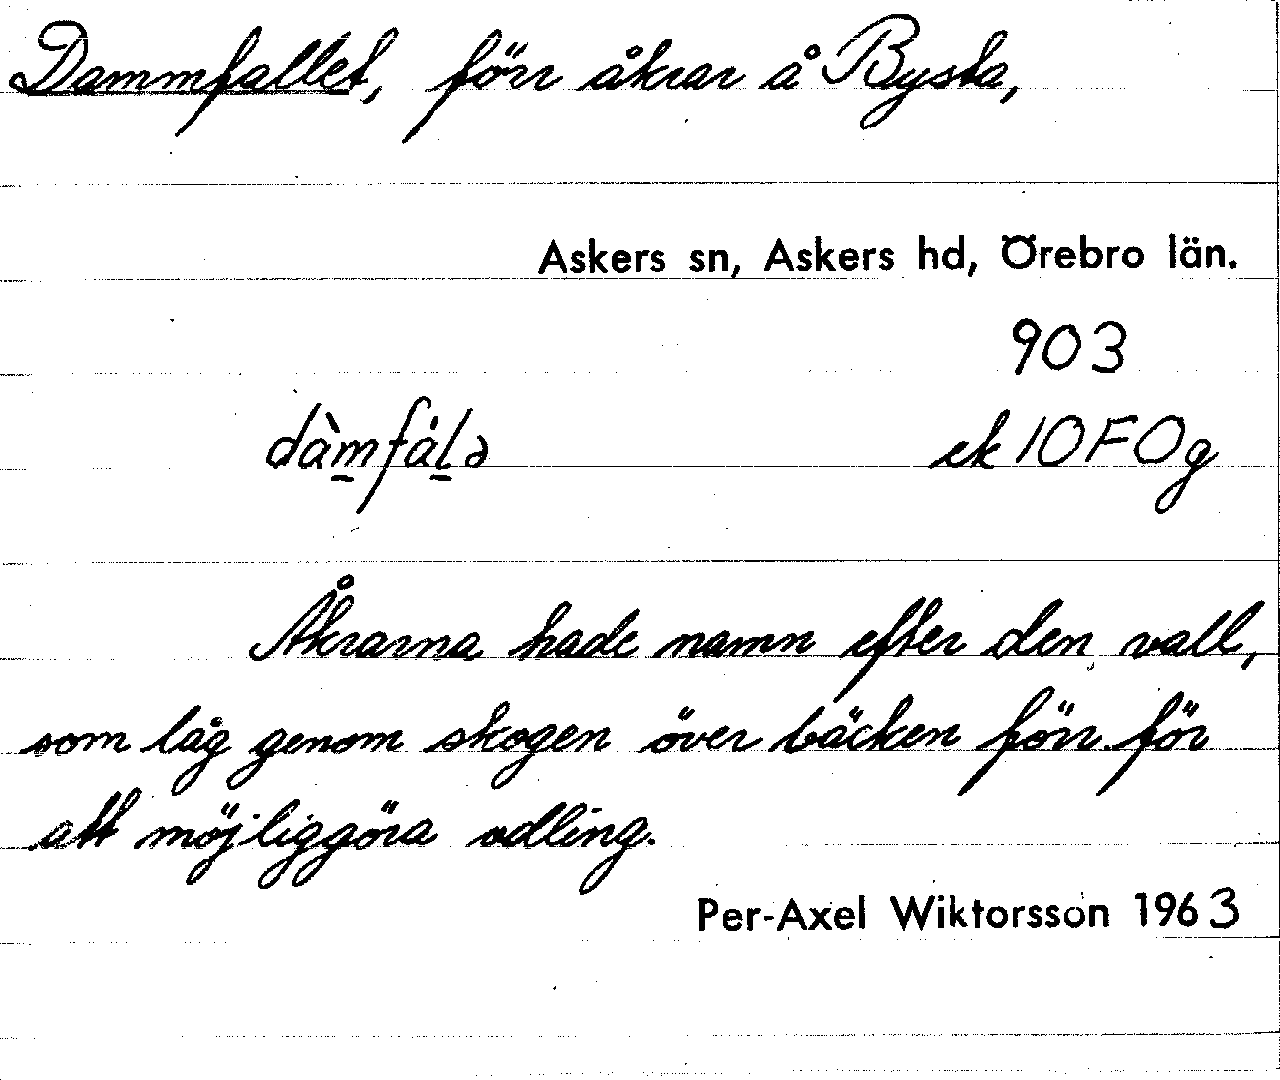 Dammfallet, förr åkrar å Bysta,
Askers sn, Askers hd, Örebro län.
903
dàm̲fál̲ə ek 10F0g
Åkrarna hade namn efter den vall,
som låg genom skogen över bäcken förr för
att möjliggöra odling.
Per-Axel Wiktorsson 1963